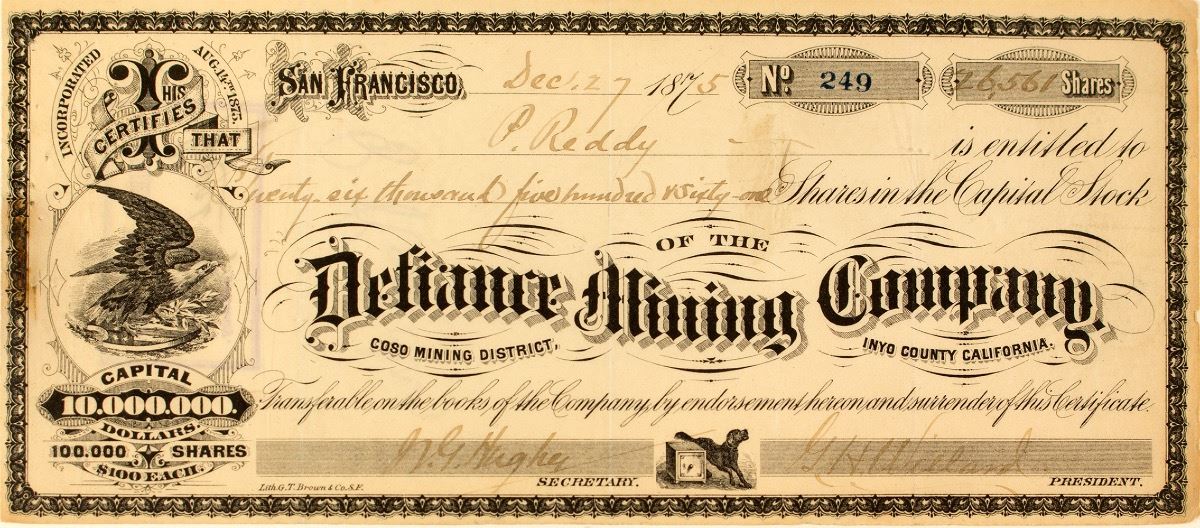 INCORPORATED AUG. 14TH 1875.
THIS
CERTIFIES
THAT
SAN FRANCISCO, Dec. 27 1875 No. 249 26,561 Shares
P. Reddy is entitled to
Twenty six thousand five hundred & sixty-one Shares in the Capital Stock
OF THE
Defiance Mining Company,
COSO MINING DISTRICT, INYO COUNTY CALIFORNIA.
CAPITAL
10.000.000.
DOLLARS.
100.000 SHARES
$100 EACH.
Transferable on the books of the Company, by endorsement hereon and surrender of this Certificate.
Hughes
SECRETARY.
PRESIDENT.
Lith. G. T. Brown & Co. S.F.